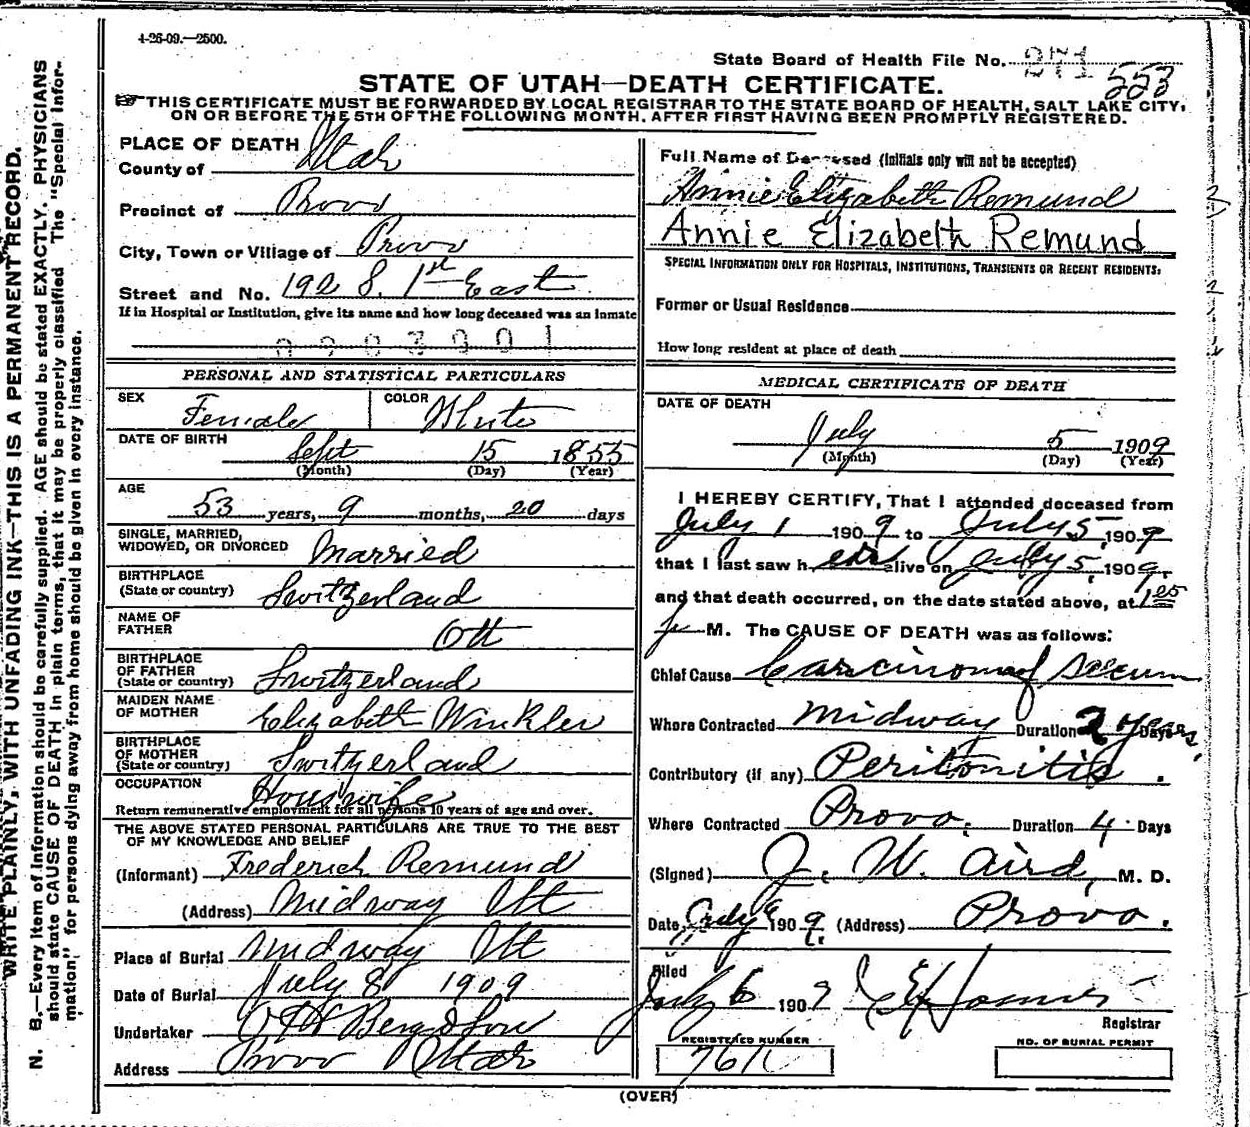 4-26-09.—2500.
State Board of Health File No. 271 553
STATE OF UTAH—DEATH CERTIFICATE.
☞THIS CERTIFICATE MUST BE FORWARDED BY LOCAL REGISTRAR TO THE STATE BOARD OF HEALTH, SALT LAKE CITY,
ON OR BEFORE THE 5TH OF THE FOLLOWING MONTH, AFTER FIRST HAVING BEEN PROMPTLY REGISTERED.
WRITE PLAINLY, WITH UNFADING INK—THIS IS A PERMANENT RECORD.
N. B.—Every item of information should be carefully supplied. AGE should be stated EXACTLY. PHYSICIANS
should state CAUSE OF DEATH in plain terms, that it may be properly classified The "Special Infor-
mation," for persons dying away from home should be given in every instance.
PLACE OF DEATH
County of Utah
Precinct of Provo
City, Town or Village of Provo
Street and No. 192 S. 1st East
If in Hospital or Institution, give its name and how long deceased was an inmate
PERSONAL AND STATISTICAL PARTICULARS
SEX Female COLOR White
DATE OF BIRTH Sept 15 1855
(Month) (Day) (Year)
AGE
53 years, 9 months, 20 days
SINGLE, MARRIED,
WIDOWED, OR DIVORCED Married
BIRTHPLACE
(State or country) Switzerland
NAME OF
FATHER Ott
BIRTHPLACE
OF FATHER
(State or country) Switzerland
MAIDEN NAME
OF MOTHER Elizabeth Winkler
BIRTHPLACE
OF MOTHER
(State or country) Switzerland
OCCUPATION Housewife
Return remunerative employment for all persons 10 years of age and over.
THE ABOVE STATED PERSONAL PARTICULARS ARE TRUE TO THE BEST
OF MY KNOWLEDGE AND BELIEF
(Informant) Frederick Remund
(Address) Midway Ut
Place of Burial Midway Ut
Date of Burial July 8 1909
Undertaker Berg & Son
Address Provo Utah
Full Name of Deceased (Initials only will not be accepted)
Annie Elizabeth Remund
Annie Elizabeth Remund
SPECIAL INFORMATION ONLY FOR HOSPITALS, INSTITUTIONS, TRANSIENTS OR RECENT RESIDENTS:
Former or Usual Residence
How long resident at place of death
MEDICAL CERTIFICATE OF DEATH
DATE OF DEATH
July 5 1909
(Month) (Day) (Year)
I HEREBY CERTIFY, That I attended deceased from
July 1 1909 to July 5, 1909
that I last saw her alive on July 5, 1909,
and that death occurred, on the date stated above, at 1 05
M. The CAUSE OF DEATH was as follows:
Chief Cause Carcinoma of
Where Contracted Midway Duration 2 years, Days
Contributory (if any) Peritonitis.
Where Contracted Provo. Duration 4 Days
(Signed) J. W. Aird, M. D.
Date July 1909. (Address) Provo.
Filed
July 6 1909
Registrar
REGISTERED NUMBER
NO. OF BURIAL PERMIT
(OVER)